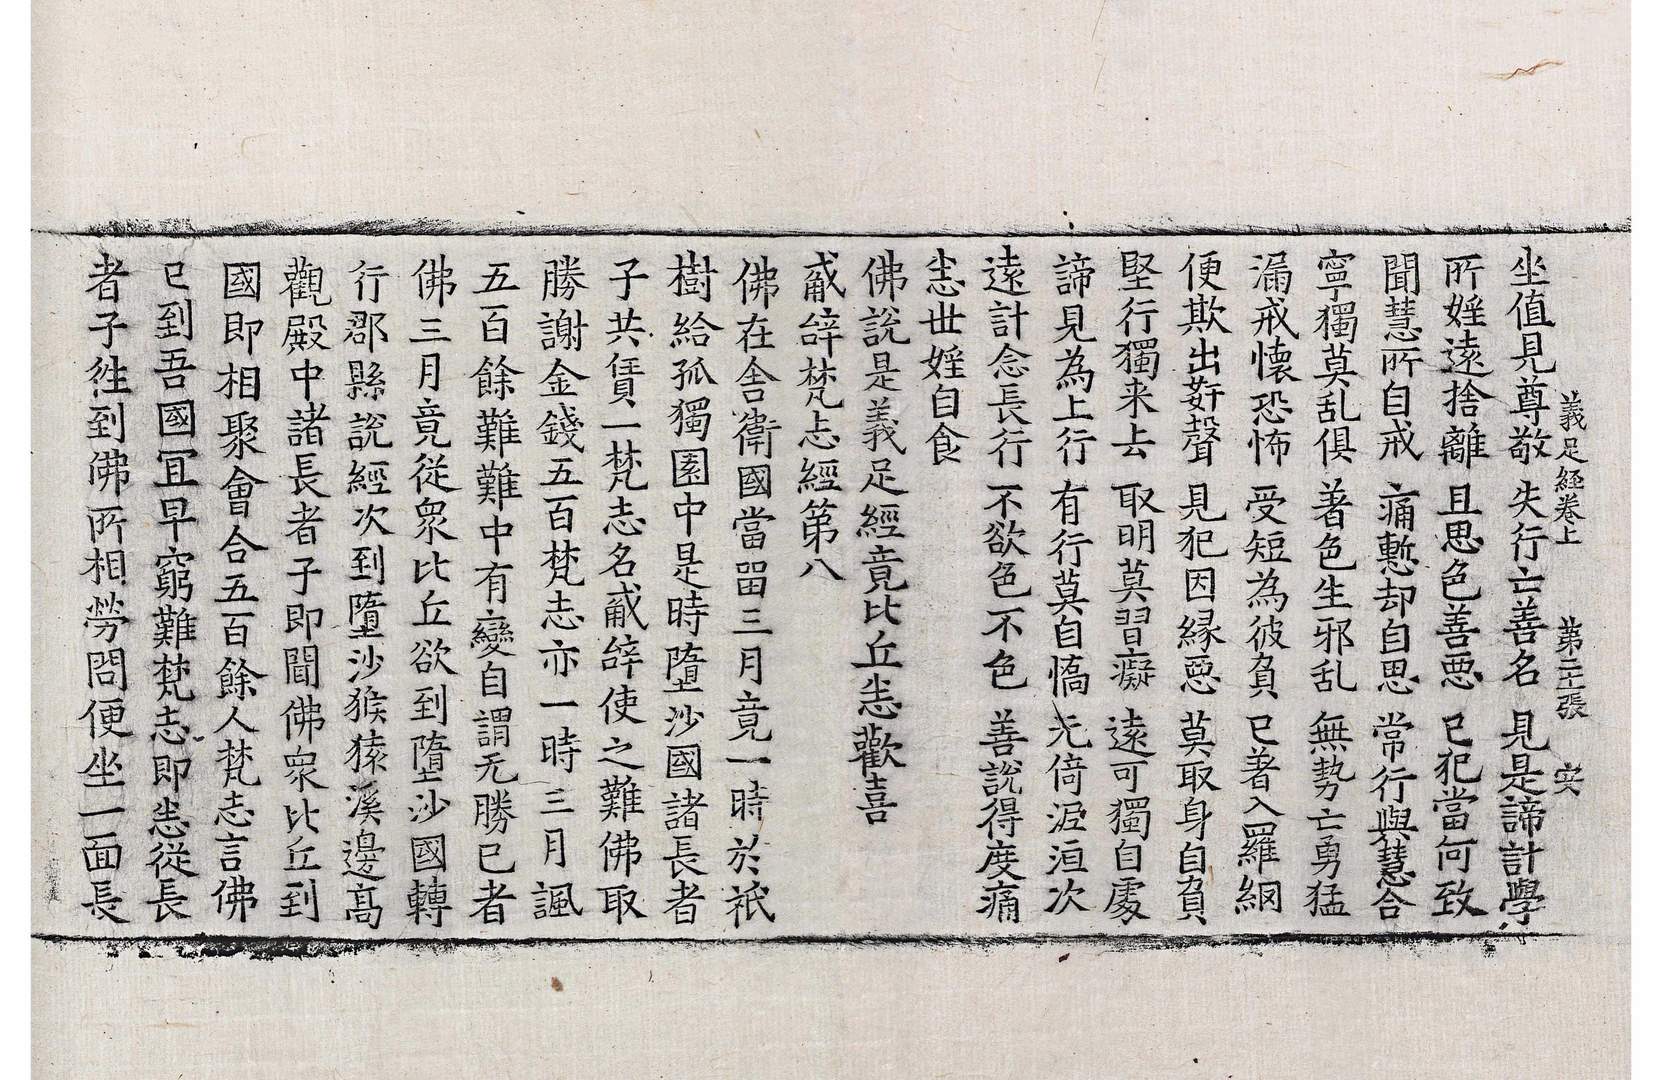 義足經卷上　第二十張　宍
坐值見尊敬　失行亡善名　見是諦計學
所婬遠捨離　且思色善惡　已犯當何致
聞慧所自戒　痛慙却自思　常行與慧合
寧獨莫乱俱　著色生邪乱　無勢亡勇猛
漏戒懷恐怖　受短為彼負　已著入羅網
便欺出姧聲　見犯因緣惡　莫取身自負
堅行獨来去　取明莫習癡　遠可獨自處
諦見為上行　有行莫自憍　无倚泥洹次
遠計念長行　不欲色不色　善說得度痛
恚世婬自食
佛說是義足經竟比丘恚歡喜
勇辭梵志經第八
佛在舍衛國當留三月竟一時於祇
樹給孤獨園中是時墮沙國諸長者
子共賃一梵志名勇辭使之難佛取
勝謝金錢五百梵志亦一時三月諷
五百餘難難中有變自謂无勝已者
佛三月竟從衆比丘欲到墮沙國轉
行郡縣說經次到墮沙猴猿溪邊高
觀殿中諸長者子即聞佛衆比丘到
國即相聚會合五百餘人梵志言佛
已到吾國冝早窮難梵志即恚從長
者子徃到佛所相勞問便坐一面長